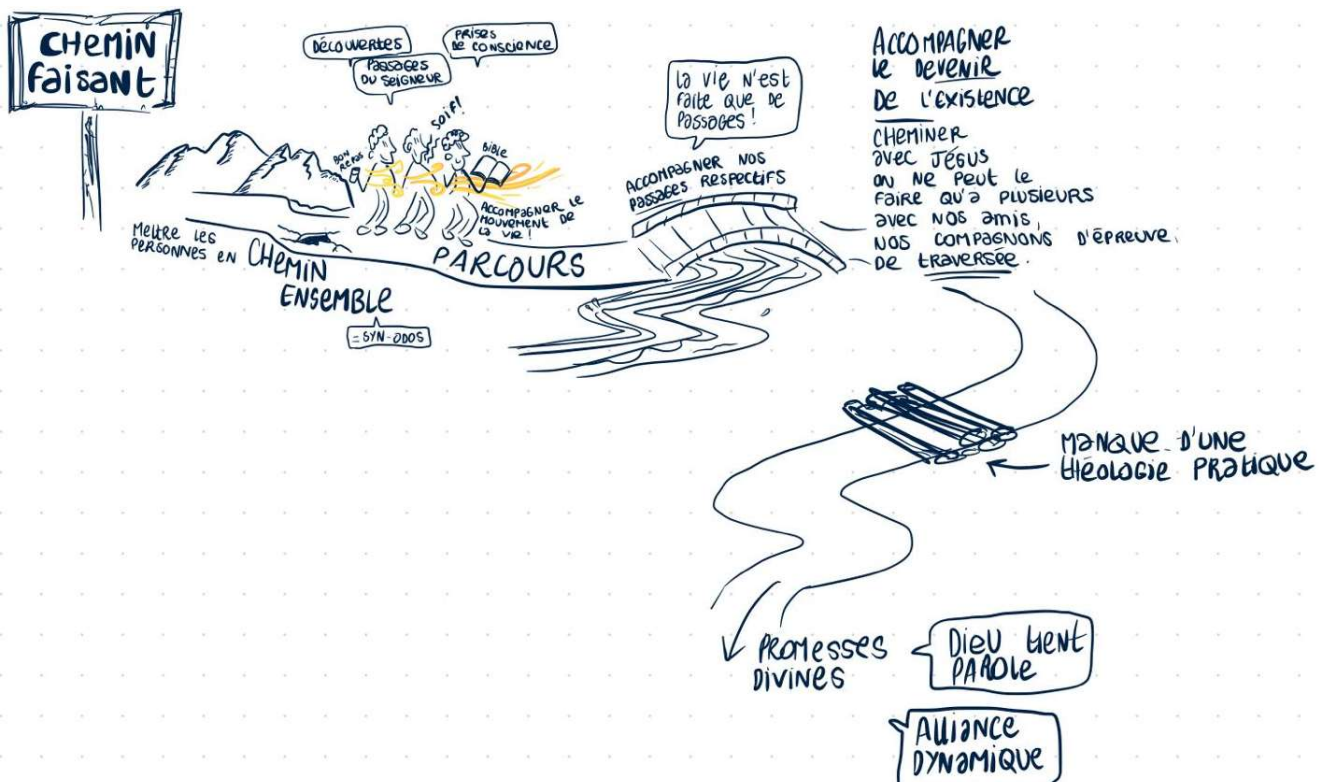 CHEMIN
FAISANT
DÉCOUVERTES
PASSAGES
DU SEIGNEUR
PRISES
DE CONSCIENCE
SOIF!
BON
REPOS
BIBLE
ACCOMPAGNER LE
MOUVEMENT DE
LA VIE !
METTRE LES
PERSONNES EN CHEMIN
ENSEMBLE
= SYN-ODOS
PARCOURS
LA VIE N'EST
FAITE QUE DE
PASSAGES !
ACCOMPAGNER NOS
PASSAGES RESPECTIFS
ACCOMPAGNER
LE DEVENIR
DE L'EXISTENCE
CHEMINER
AVEC JÉSUS
ON NE PEUT LE
FAIRE QU'À PLUSIEURS
AVEC NOS AMIS,
NOS COMPAGNONS D'ÉPREUVE,
DE TRAVERSÉE.
MANQUE D'UNE
THÉOLOGIE PRATIQUE
PROMESSES
DIVINES
DIEU TIENT
PAROLE
ALLIANCE
DYNAMIQUE